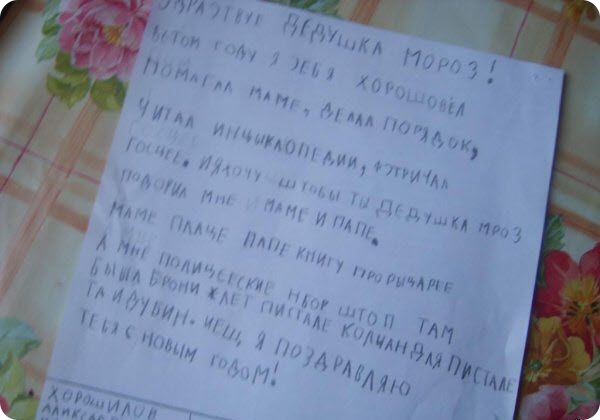 ЗДРАСТВУЕ ДЕДУШКА МОРОЗ!
ВЕТОМ ГОДУ Я СЕБЯ ХОРОШОВЁЛ
ПОМАГАЛ МАМЕ, ДЕЛАЛ ПОРЯДОК,
ЧИТАЛ ИНЦЫКЛОПЕДИИ,
ГОСЧЕЕ. ИЯХОЧУ ШТОБЫ ТЫ ДЕДУШКА МРОЗ
ПОДОРИЛ МНЕ И МАМЕ И ПАПЕ.
МАМЕ ПЛАЦЕ ПАПЕ КНИГУ ПРО РЫЦАРЕЕ
А МНЕ ПОЛИЦЕЕСКИЕ НБОР ШТО П ТАМ
БЫЛА БРОНИ ЖЛЕТ ПИСТАЛЕ КОЛЧАН ДЛЯ ПИСТАЛЕ
ТА И ДУБИН. ИЕЩ Я ПОЗДРАВЛЯЮ
ТЕБЯ С НОВЫМ ГОДОМ!
ХОРОШИЛОВ